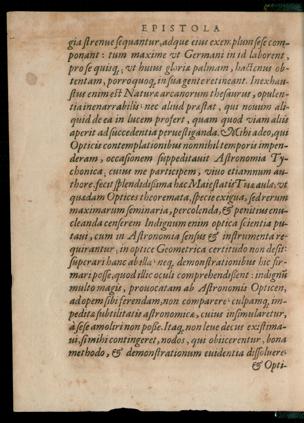 EPISTOLA
gia strenue sequantur, adque eius exemplum sese com-
ponant: tum maxime vt Germani in id laborent,
pro se quisq;, vt huius gloriæ palmam, hactenus ob-
tentam, porroquoq; in sua gente retineant. Inexhau-
stus enim est Naturæ arcanorum thesaurus, opulen-
tia inenarrabilis: nec aliud præstat, qui nouum ali-
quid de ea in lucem profert, quam quod viam alijs
aperit ad succedentia peruestiganda. Mihi adeo, qui
Opticis contemplationibus nonnihil temporis impen-
deram, occasionem suppeditauit Astronomia Ty-
chonica, cuius me participem, viuo etiamnum au-
thore, fecit splendidissima hæc Maiestatis Tuæ aula: vt
quædam Optices theoremata, specie exigua, sed rerum
maximarum seminaria, percolenda, & penitus enu-
cleanda censerem. Indignum enim optica scientia pu-
taui, cum in Astronomia sensus & instrumenta re-
quirantur, in optice Geometrica certitudo non desit:
superari hanc ab illa: neq; demonstrationibus hic fir-
mari posse, quod illic oculi comprehendissent: indignũ
multo magis, prouocatam ab Astronomis Opticen,
ad opem sibi ferendam, non comparere: culpamq; im-
peditæ subtilitatis astronomicæ, cuius insimularetur,
à sese amoliri non posse. Itaq; non leue decus existima-
ui, si mihi contingeret, nodos, qui obijcerentur, bona
methodo, & demonstrationum euidentia dissoluere:
& Opti-